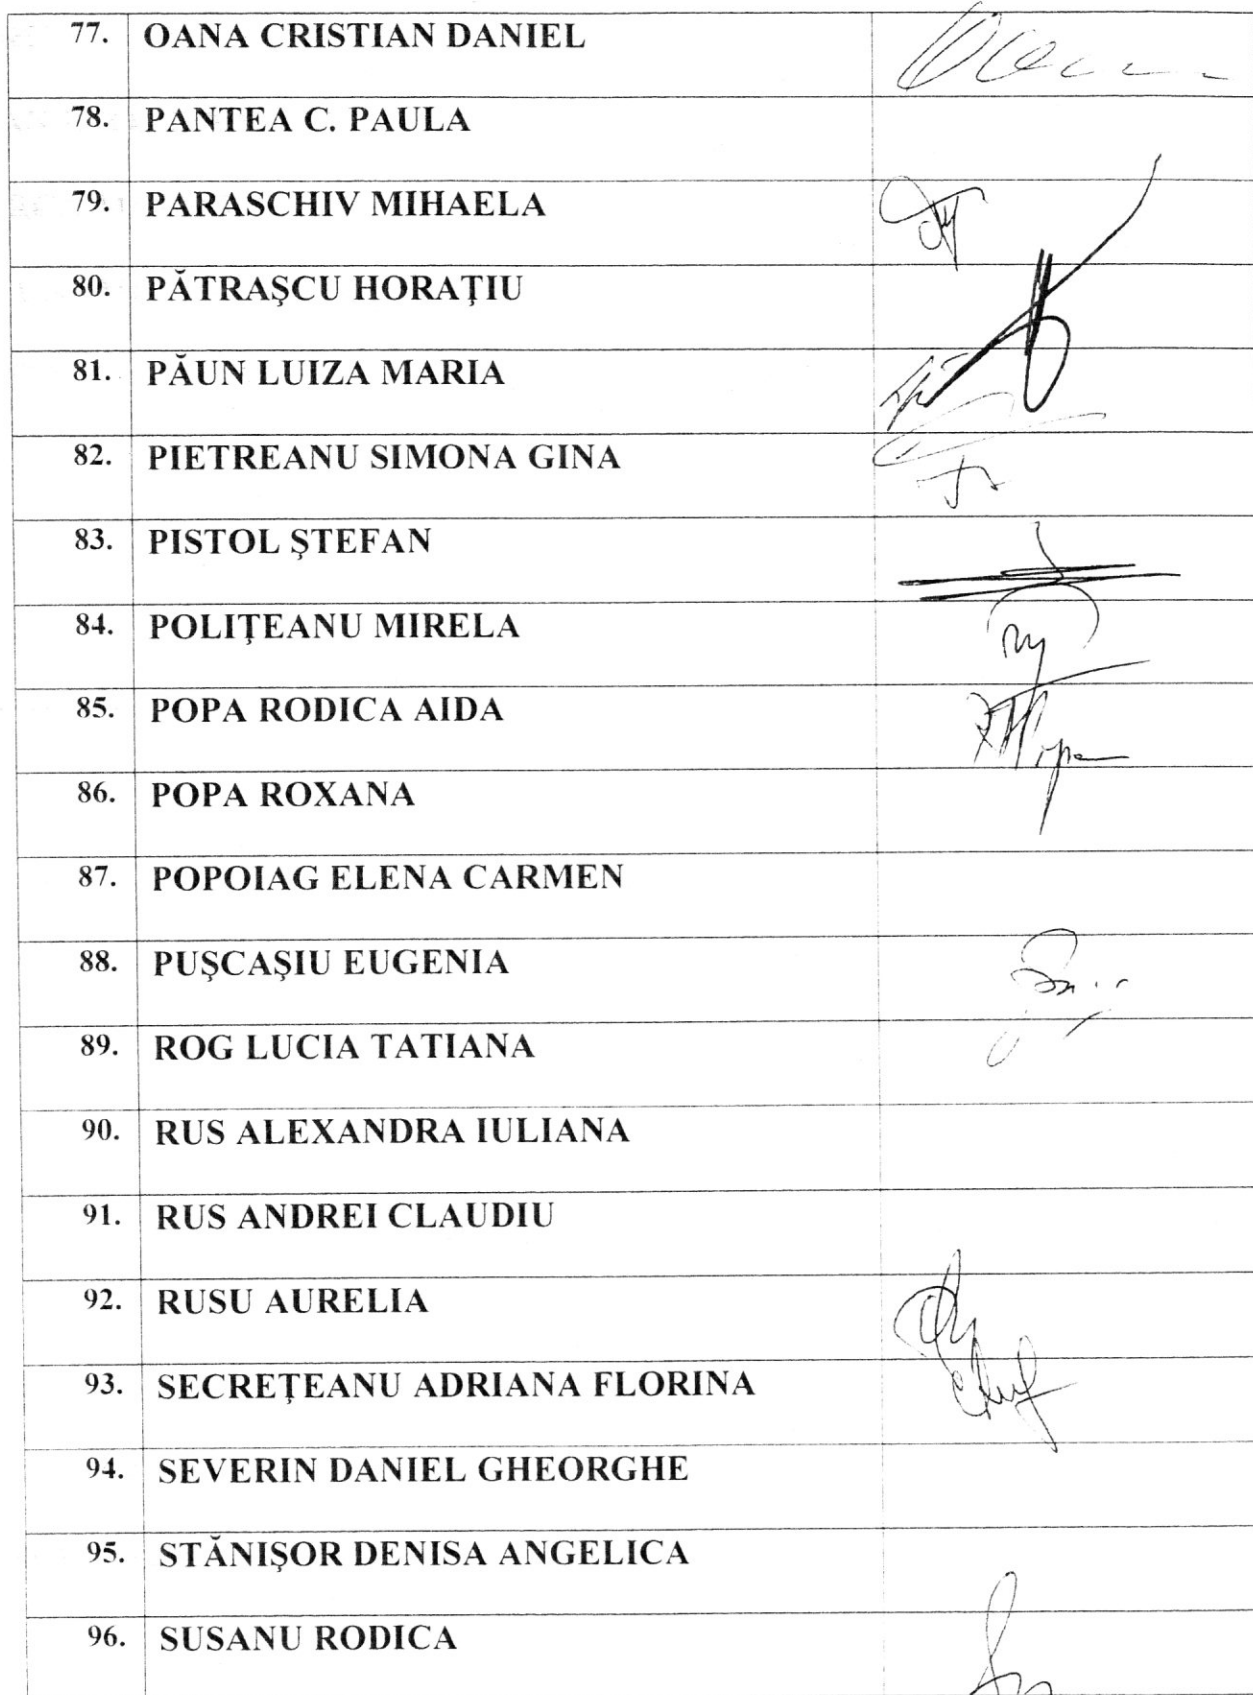 77. OANA CRISTIAN DANIEL
78. PANTEA C. PAULA
79. PARASCHIV MIHAELA
80. PĂTRAŞCU HORAŢIU
81. PĂUN LUIZA MARIA
82. PIETREANU SIMONA GINA
83. PISTOL ŞTEFAN
84. POLIŢEANU MIRELA
85. POPA RODICA AIDA
86. POPA ROXANA
87. POPOIAG ELENA CARMEN
88. PUŞCAŞIU EUGENIA
89. ROG LUCIA TATIANA
90. RUS ALEXANDRA IULIANA
91. RUS ANDREI CLAUDIU
92. RUSU AURELIA
93. SECREŢEANU ADRIANA FLORINA
94. SEVERIN DANIEL GHEORGHE
95. STĂNIŞOR DENISA ANGELICA
96. SUSANU RODICA